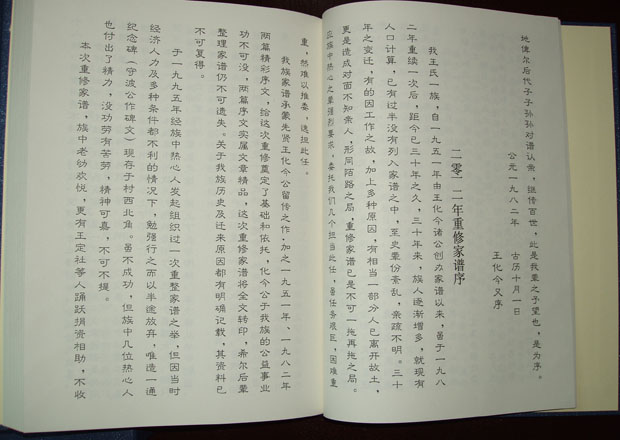 地，俾尔后代子子孙孙对谱认亲，继传百世，此是我辈之予望也，是为序。
公元一九八二年　古历十月一日
王化今又序
二零一二年重修家谱序
我王氏一族，自一九五一年由王化今诸公创办家谱以来，虽于一九八
二年重续一次后，距今已三十年之久，三十年来，族人逐渐增多，就现有
人口计算，已有过半没有列入家谱之中，至史辈份紊乱，亲疏不明。三十
年之变迁，有的因工作之故，加上多种原因，有相当一部分人已离开故土，
更是造成对面不知亲人，形同陌路之局，重修家谱已是不可一拖再拖之局。
应族中热心之辈强烈要求，委托我们几个担当此任，虽任务艰巨，困难重
重，然难以推委，遂担此任。
我族家谱承蒙先贤王化今公留传之作，加之一九五一年、一九八二年
两篇精彩序文，给这次重修奠定了基础和依托，化今公于我族的公益事业
功不可没，两篇序文实属文章精品，这次重修家谱将全文转印，希尔后辈
整理家谱仍不可遗失。关于我族历史及迁来原因都有明确记载，其资料已
不可复得。
于一九九五年经族中热心人发起组织过一次重整家谱之举，但因当时
经济人力及多种条件都不利的情况下，勉强行之而以半途放弃，唯造一通
纪念碑（守波公作碑文）现存于村西北角。虽不成功，但族中几位热心人
也付出了精力，没功劳有苦劳，精神可嘉，不可不提。
本次重修家谱，族中老幼欢悦，更有王定社等人踊跃捐资相助，不收